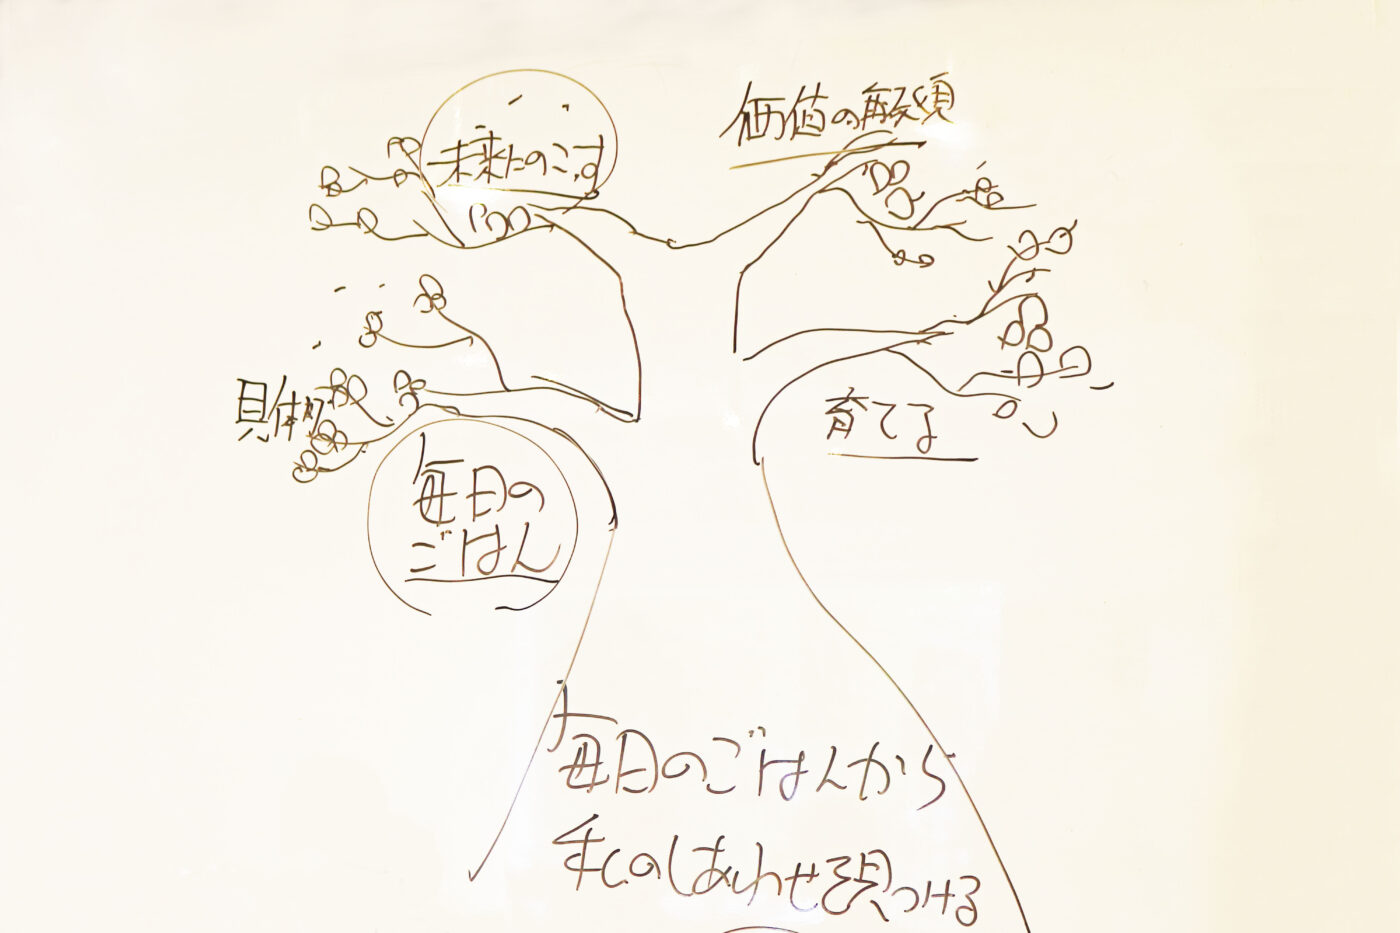 未来にのこす
価値の再発見
具体的
育てる
毎日の
ごはん
毎日のごはんから
私のしあわせを見つける